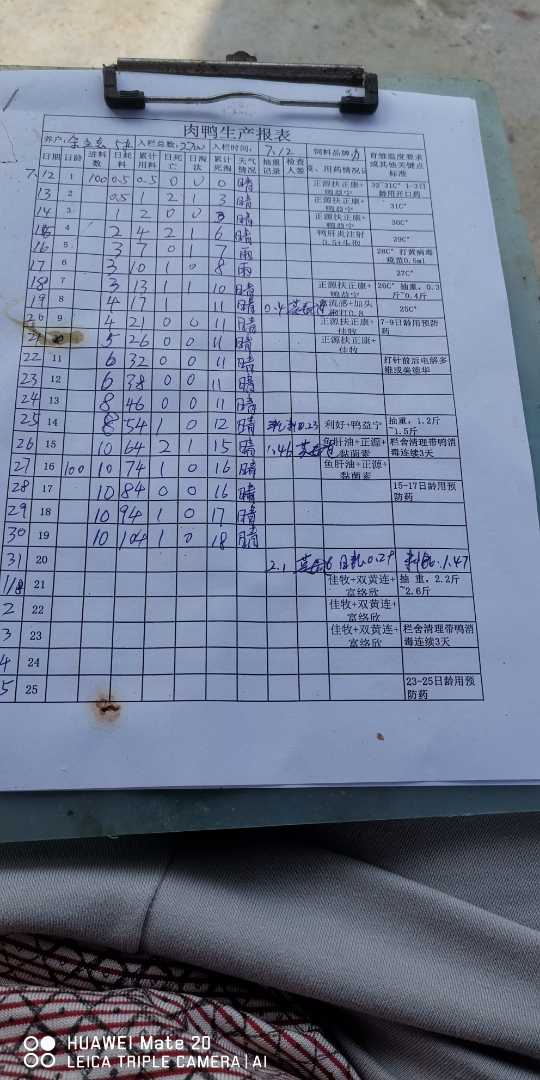 肉鸭生产报表
养户: 入栏总数: 入栏时间: 7.12 饲料品牌
日期 日龄 进料数 日耗料 累计用料 日死亡 日淘汰 累计死淘 天气情况 抽重记录 检查人签 用药情况 育雏温度要求或其他关键点标准
7.12 1 100 0.5 0.5 0 0 0 晴 正源扶正康+鸭益宁 32°31C° 1-2日龄用开口药
13 2 0.5 2 1 3 晴 正源扶正康+鸭益宁 31C°
14 3 1 2 0 0 3 晴 正源扶正康+鸭益宁 30C°
15 4 2 4 2 1 6 晴 鸭肝炎注射 29C°
16 5 3 7 0 1 7 雨 28C° 打黄病毒疫苗0.5ml
17 6 3 10 1 0 8 雨 27C°
18 7 3 13 1 1 10 晴 正源扶正康+鸭益宁 26C° 抽重，0.3斤~0.4斤
19 8 4 17 1 11 晴 0.4 禽流感+加头孢打0.8 25C°
20 9 4 21 0 0 11 晴 正源扶正康+佳牧 7-9日龄用预防药
21 5 26 0 0 11 晴 正源扶正康+佳牧
22 11 6 32 0 0 11 晴 打针前后电解多维或美德华
23 12 6 38 0 0 11 晴
24 13 8 46 0 0 11 晴
25 14 8 54 1 0 12 晴 0.23 利好+鸭益宁 抽重，1.2斤~1.5斤
26 15 10 64 2 1 15 晴 1.46 鱼肝油+正源+黏菌素 栏舍清理带鸭消毒连续3天
27 16 100 10 74 1 0 16 晴 鱼肝油+正源+黏菌素
28 17 10 84 0 0 16 晴 15-17日龄用预防药
29 18 10 94 1 0 17 晴
30 19 10 104 1 0 18 晴
31 20 2.1 日耗0.29 料比:1.47
1/8 21 佳牧+双黄连+富络欣 抽重，2.2斤~2.6斤
2 22 佳牧+双黄连+富络欣
3 23 佳牧+双黄连+富络欣 栏舍清理带鸭消毒连续3天
4 24
5 25 23-25日龄用预防药
HUAWEI Mate 20
LEICA TRIPLE CAMERA | AI